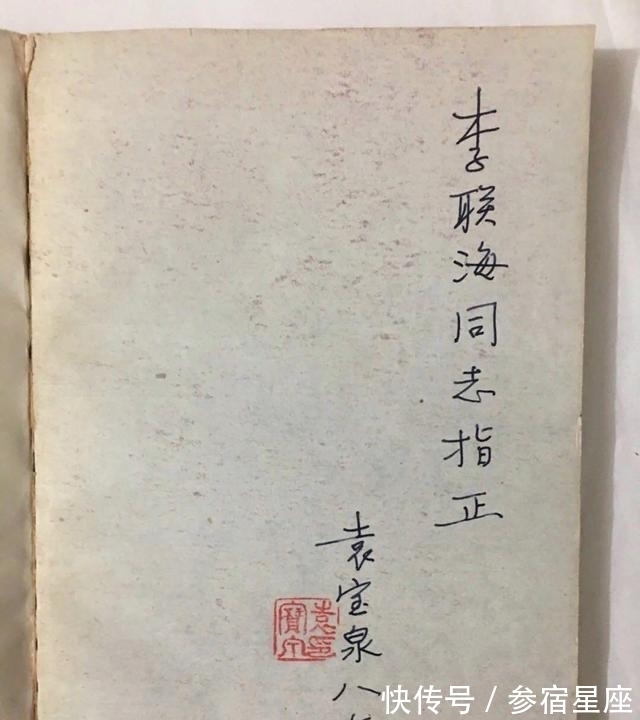 李联海同志指正
袁宝泉八
快传号 / 参宿星座